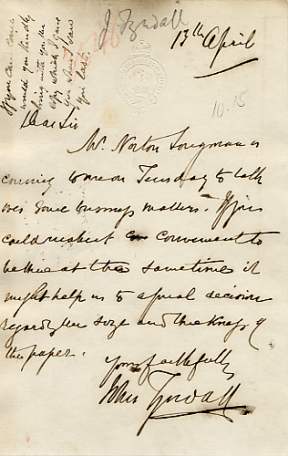 J Tyndall
13th April
If you can come
would you kindly
bring with you the
copy which I gave
you when I saw
you last.
10.15
Dear Sir
Mr. Norton Longman is
coming to me on Tuesday to talk
over some business matters. If you
could make it convenient to
be there at the same time it
might help us to a final decision
regarding the size and thickness of
the paper.
Yours faithfully
John Tyndall